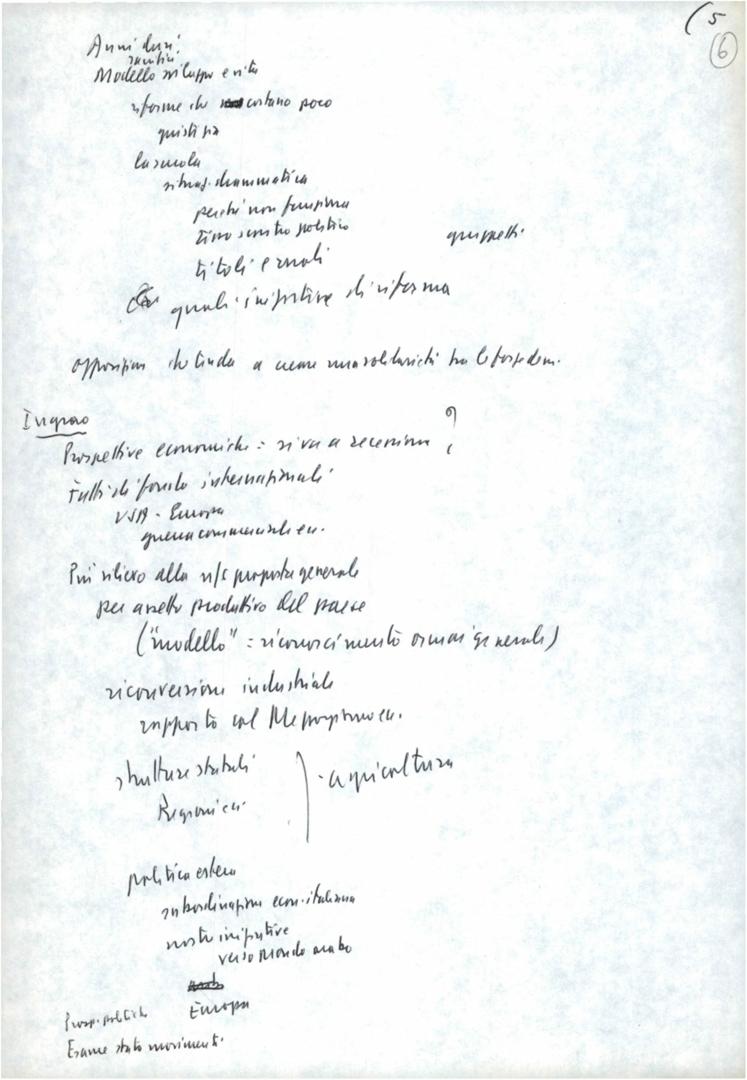 (5
(6)
Anni duri
sacrifici
Modello sviluppo e vita
riforme che costano poco
giustizia
la scuola
situaz. drammatica
perché non funziona
tiro sinistro politico
gruppetti
titoli e ruoli
quali iniziative di riforma
opposizione che tenda a creare una solidarietà tra le forze dem.
Ingrao
Prospettive economiche: si va a recessione ?
Fatti di fondo internazionali
USA - Europa
guerra commerciale ecc.
Più rilievo alla n/s proposta generale
per assetto produttivo del paese
("modello" = riconoscimento ormai generale)
riconversione industriale
rapporto col Mezzogiorno ecc.
strutture statali
- agricoltura
Regioni ecc.
politica estera
subordinazione econ. italiana
nostre iniziative
verso mondo arabo
Europa
Prosp. politiche
Esame stato movimenti.